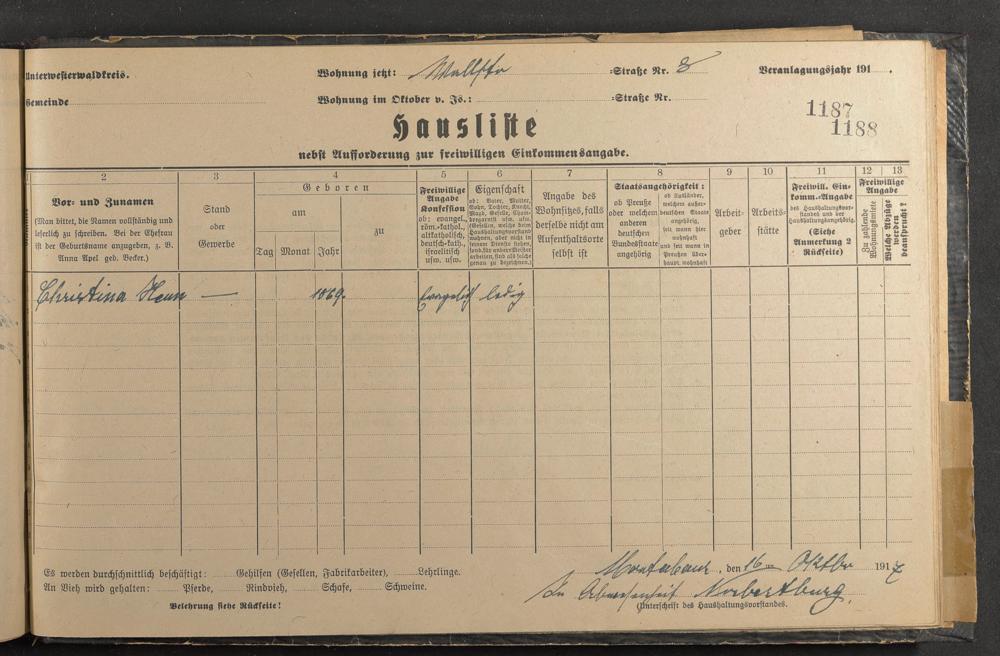 Unterwesterwaldkreis.
Wohnung jetzt: Wallstr =Straße Nr. 8
Veranlagungsjahr 191 .
Gemeinde
Wohnung im Oktober v. Js.: =Straße Nr.
1187
1188
Hausliste
nebst Aufforderung zur freiwilligen Einkommensangabe.
2
3
4
5
6
7
8
9
10
11
12
13
Vor- und Zunamen
(Man bittet, die Namen vollständig und
leserlich zu schreiben. Bei der Ehefrau
ist der Geburtsname anzugeben, z. B.
Anna Apel geb. Becker.)
Stand
oder
Gewerbe
Geboren
am
zu
Tag Monat Jahr
Freiwillige
Angabe
Konfession
ob: evangel.,
röm.-kathol.,
altkatholisch,
deutsch-kath.,
israelitisch
usw. usw.
Eigenschaft
ob: Vater, Mutter,
Sohn, Tochter, Knecht,
Magd, Geselle,
Angabe des
Wohnsitzes, falls
derselbe nicht am
Aufenthaltsorte
selbst ist
Staatsangehörigkeit:
ob Preuße
oder welchem
anderen
deutschen
Bundesstaate
angehörig
ob Ausländer,
welchem außer-
deutschen Staate
angehörig,
seit wann hier
wohnhaft
und seit wann in
Preußen über-
haupt wohnhaft
Arbeit-
geber
Arbeits-
stätte
Freiwill. Ein-
komm.-Angabe
des Haushaltungsvor-
standes und der
Haushaltungsangehörig.
(Siehe
Anmerkung 2
Rückseite)
Freiwillige
Angabe
Zu zahlende
Wohnungsmiete
Welche Abzüge
werden
beansprucht?
Christina Heun — 1869. Evangelisch ledig
Es werden durchschnittlich beschäftigt: Gehilfen (Gesellen, Fabrikarbeiter), Lehrlinge.
An Vieh wird gehalten: Pferde, Rindvieh, Schafe, Schweine.
Belehrung siehe Rückseite!
Montabaur, den 16 Oktbr 1917
In Abwesenheit Norbertburg.
(Unterschrift des Haushaltungsvorstandes.